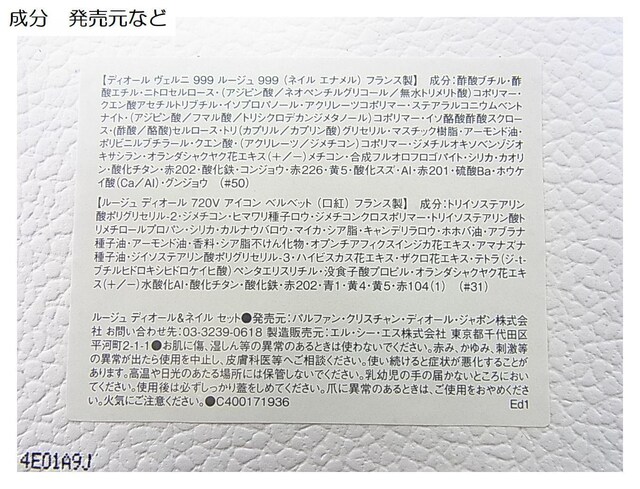 成分　発売元など
【ディオール ヴェルニ 999 ルージュ 999 (ネイル エナメル) フランス製】 成分:酢酸ブチル・酢
酸エチル・ニトロセルロース・(アジピン酸／ネオペンチルグリコール／無水トリメリト酸)コポリマー・
クエン酸アセチルトリブチル・イソプロパノール・アクリレーツコポリマー・ステアラルコニウムベント
ナイト・(アジピン酸／フマル酸／トリシクロデカンジメタノール)コポリマー・イソ酪酸酢酸スクロー
ス・(酢酸／酪酸)セルロース・トリ(カプリル／カプリン酸)グリセリル・マスチック樹脂・アーモンド油・
ポリビニルブチラール・クエン酸・(アクリレーツ／ジメチコン)コポリマー・ジメチルオキソベンゾジ
オキサシラン・オランダシャクヤク花エキス(＋/－)メチコン・合成フルオロフロゴパイト・シリカ・カオリ
ン・酸化チタン・赤202・酸化鉄・コンジョウ・赤226・黄5・酸化スズ・Al・赤201・硫酸Ba・ホウケ
イ酸(Ca/Al)・グンジョウ　(#50)
【ルージュ ディオール 720V アイコン ベルベット (口紅) フランス製】 成分:トリイソステアリン
酸ポリグリセリル-2・ジメチコン・ヒマワリ種子ロウ・ジメチコンクロスポリマー・トリイソステアリン酸ト
リメチロールプロパン・シリカ・カルナウバロウ・マイカ・シア脂・キャンデリラロウ・ホホバ油・アブラナ
種子油・アーモンド油・香料・シア脂不けん化物・オプンチアフィクスインジカ花エキス・アマナズナ
種子油・ジイソステアリン酸ポリグリセリル-3・ハイビスカス花エキス・ザクロ花エキス・テトラ(ジ-t-
ブチルヒドロキシヒドロケイヒ酸)ペンタエリスリチル・没食子酸プロピル・オランダシャクヤク花エキ
ス(＋/－)水酸化Al・酸化チタン・酸化鉄・赤202・青1・黄4・黄5・赤104(1)　(#31)
ルージュ ディオール&ネイル セット●発売元:パルファン・クリスチャン・ディオール・ジャポン株式会
社 お問い合わせ先:03-3239-0618 製造販売元:エル・シー・エス株式会社 東京都千代田区
平河町2-1-1●お肌に傷、湿しん等の異常のあるときは使わないでください。赤み、かゆみ、刺激等
の異常が出たら使用を中止し、皮膚科医等へご相談ください。使い続けると症状が悪化することが
あります。高温や日光のあたる場所には保管しないでください。乳幼児の手の届かないところにおい
てください。使用後は必ずしっかり蓋をしめてください。爪に異常のあるときは、ご使用をおやめくださ
い。火気にご注意ください。●C400171936
Ed1
4E01A9J